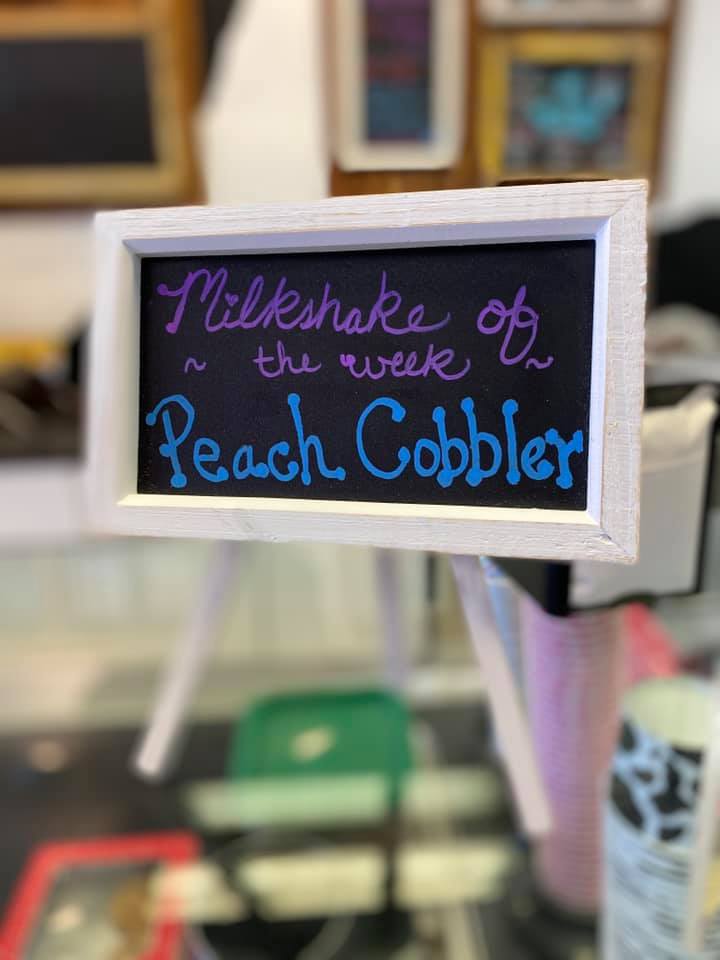 Milkshake of
~ the week ~
Peach Cobbler